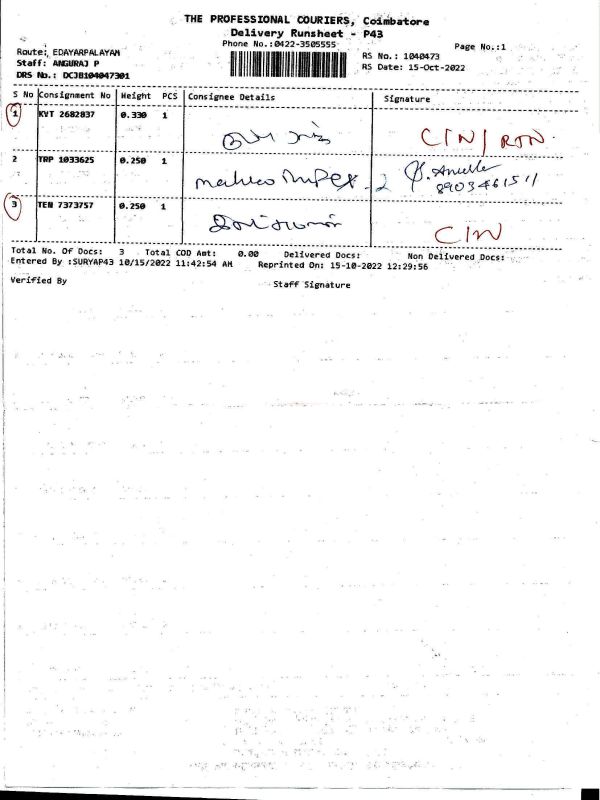 THE PROFESSIONAL COURIERS, Coimbatore
Delivery Runsheet - P43
Phone No.:0422-3505555
Page No.:1
Route: EDAYARPALAYAM
Staff: ANGURAJ P
DRS No.: DCJB104047301
RS No.: 1040473
RS Date: 15-Oct-2022
S No Consignment No Weight PCS Consignee Details Signature
1 KVT 2682837 0.330 1
CIN/RTN
2 TRP 1033625 0.250 1
8903461511
3 TEN 7373757 0.250 1
CIN
Total No. Of Docs: 3 Total COD Amt: 0.00 Delivered Docs: Non Delivered Docs:
Entered By :SURYAP43 10/15/2022 11:42:54 AM Reprinted On: 15-10-2022 12:29:56
Verified By
Staff Signature